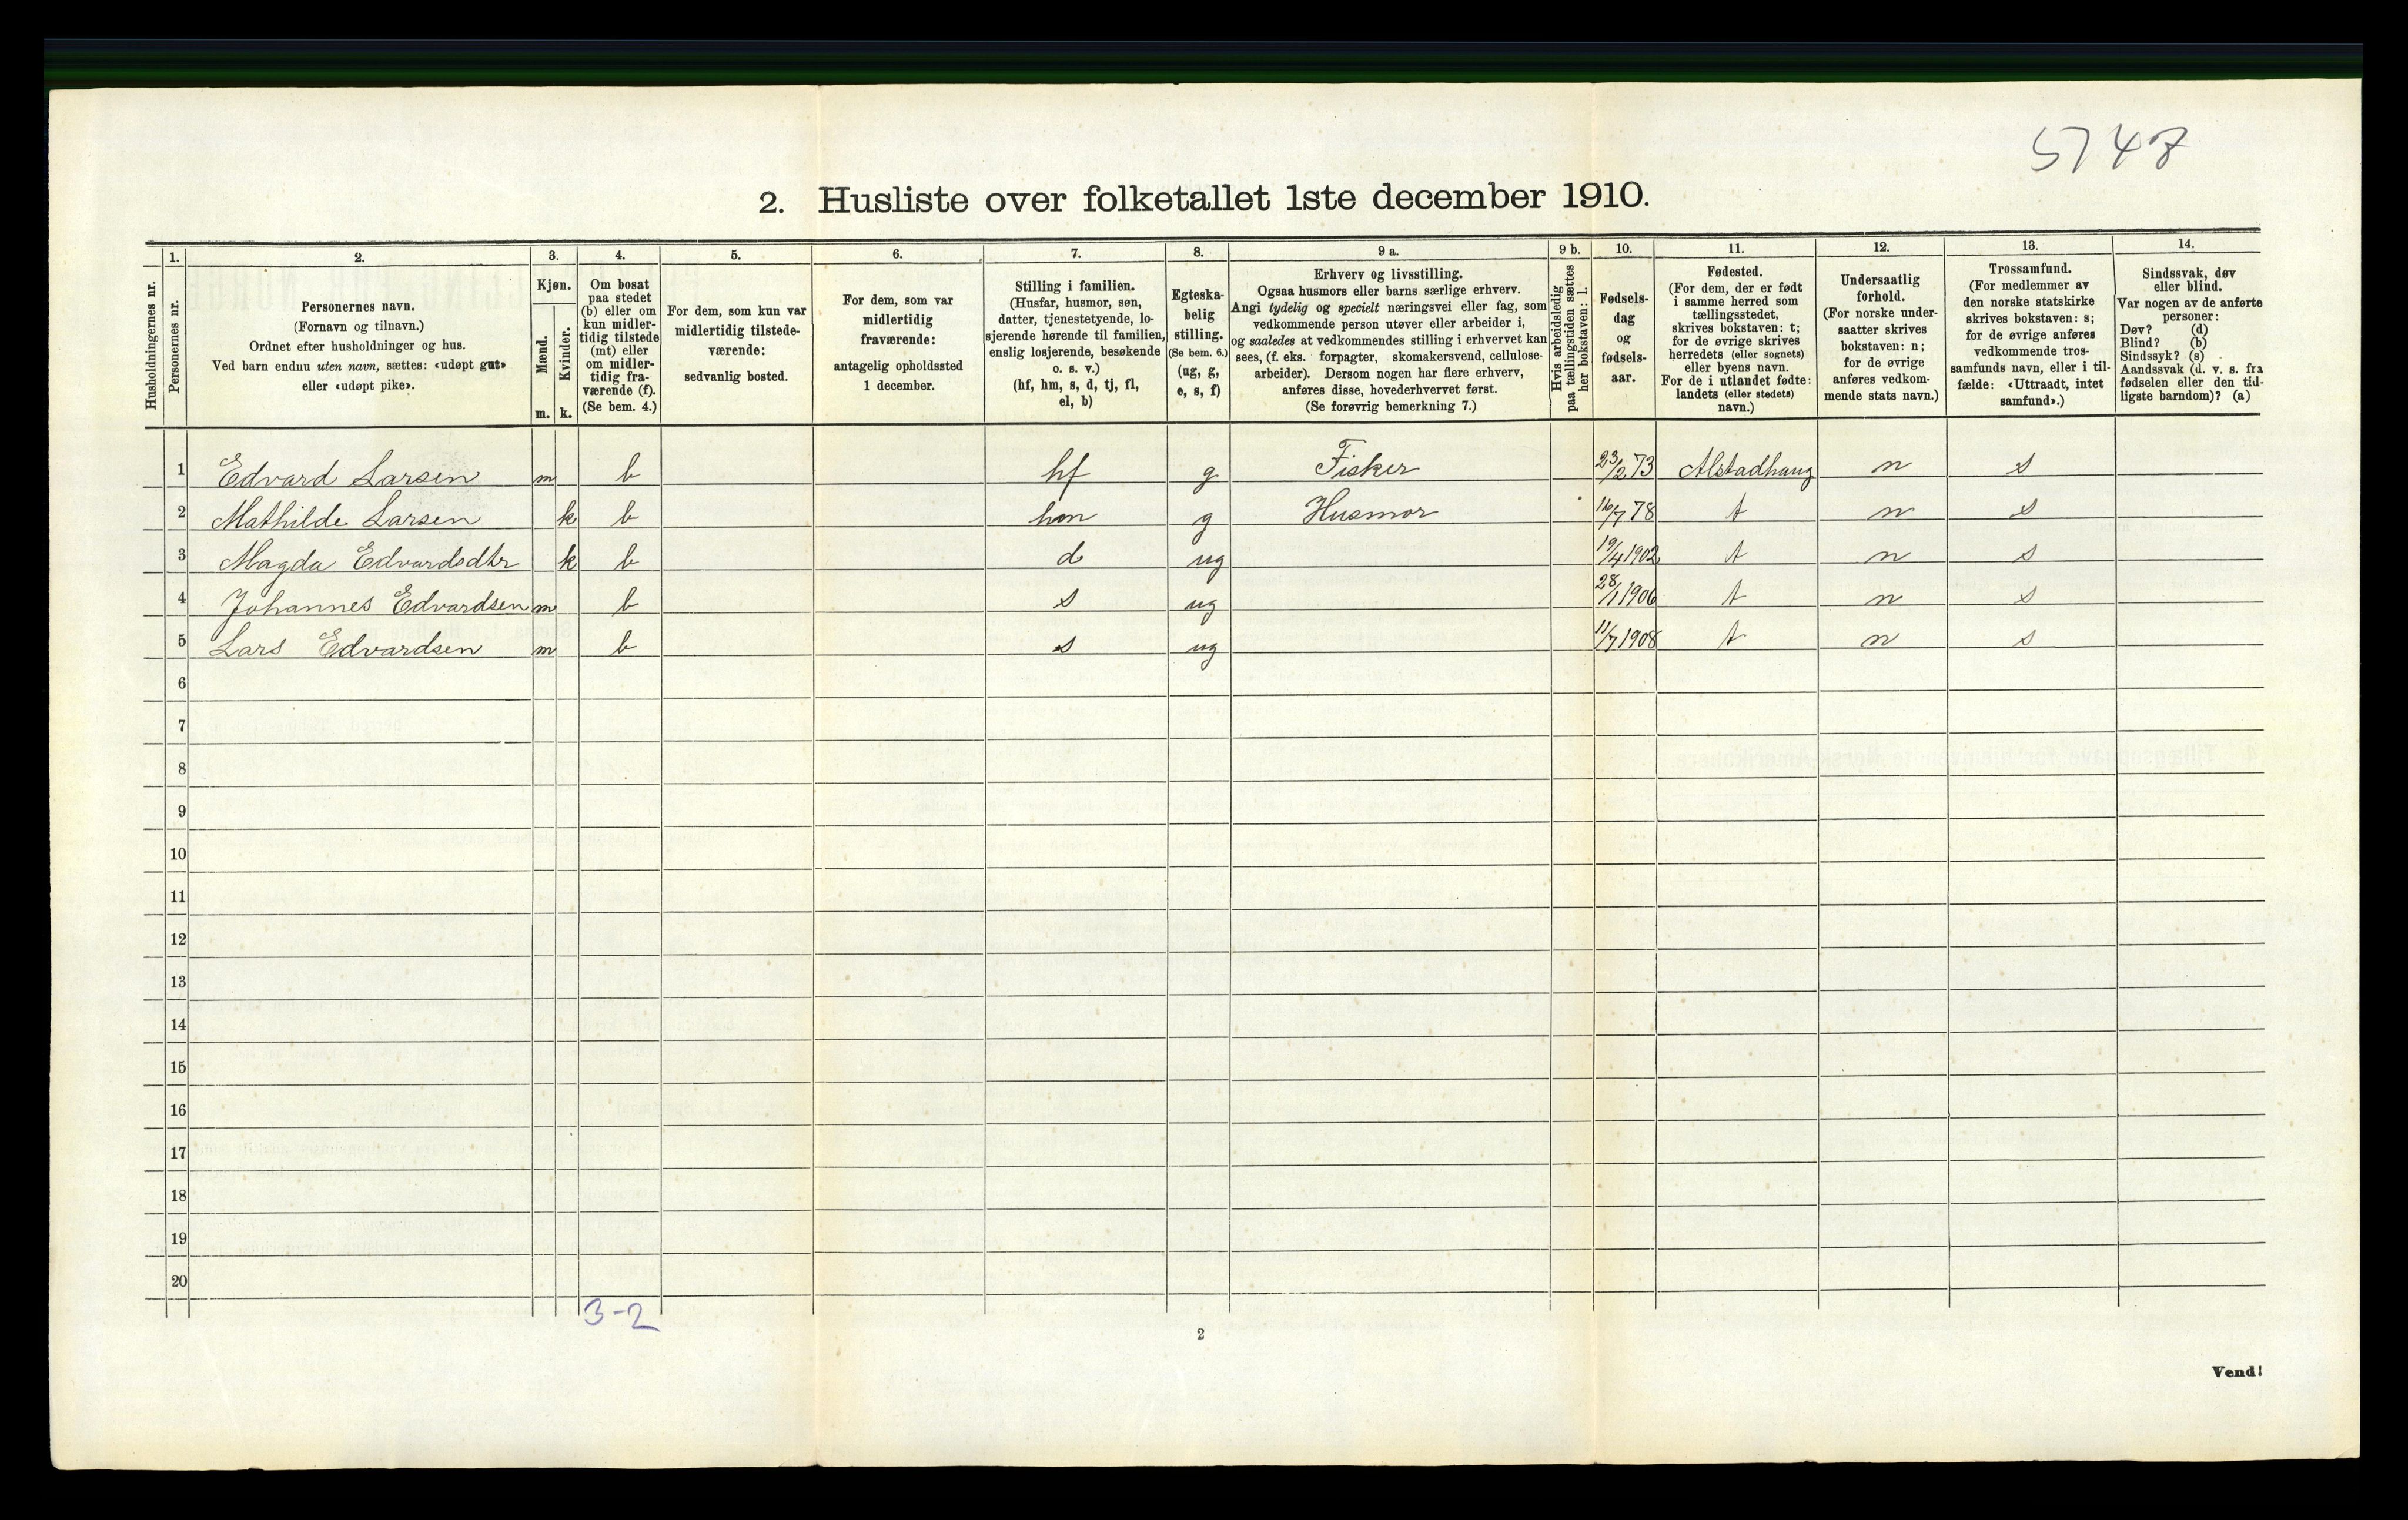 5748
2. Husliste over folketallet 1ste december 1910.
Husholdningernes nr.
1.
Personernes nr.
2.
Personernes navn.
(Fornavn og tilnavn.)
Ordnet efter husholdninger og hus.
Ved barn endnu uten navn, sættes: «udøpt gut»
eller «udøpt pike».
3.
Kjøn.
Mænd.
Kvinder.
m. k.
4.
Om bosat
paa stedet
(b) eller om
kun midler-
tidig tilstede
(mt) eller
om midler-
tidig fra-
værende (f).
(Se bem. 4.)
5.
For dem, som kun var
midlertidig tilstede-
værende:
sedvanlig bosted.
6.
For dem, som var
midlertidig
fraværende:
antagelig opholdssted
1 december.
7.
Stilling i familien.
(Husfar, husmor, søn,
datter, tjenestetyende, lo-
sjerende hørende til familien,
enslig losjerende, besøkende
o. s. v.)
(hf, hm, s, d, tj, fl,
el, b)
8.
Egteska-
belig
stilling.
(Se bem. 6.)
(ug, g,
e, s, f)
9 a.
Erhverv og livsstilling.
Ogsaa husmors eller barns særlige erhverv.
Angi tydelig og specielt næringsvei eller fag, som
vedkommende person utøver eller arbeider i,
og saaledes at vedkommendes stilling i erhvervet kan
sees, (f. eks. forpagter, skomakersvend, cellulose-
arbeider). Dersom nogen har flere erhverv,
anføres disse, hovederhvervet først.
(Se forøvrig bemerkning 7.)
9 b.
Hvis arbeidsledig
paa tællingstiden sættes
her bokstaven: l.
10.
Fødsels-
dag
og
fødsels-
aar.
11.
Fødested.
(For dem, der er født
i samme herred som
tællingsstedet,
skrives bokstaven: t;
for de øvrige skrives
herredets (eller sognets)
eller byens navn.
For de i utlandet fødte:
landets (eller stedets)
navn.)
12.
Undersaatlig
forhold.
(For norske under-
saatter skrives
bokstaven: n;
for de øvrige
anføres vedkom-
mende stats navn.)
13.
Trossamfund.
(For medlemmer av
den norske statskirke
skrives bokstaven: s;
for de øvrige anføres
vedkommende tros-
samfunds navn, eller i til-
fælde: «Uttraadt, intet
samfund».)
14.
Sindssvak, døv
eller blind.
Var nogen av de anførte
personer:
Døv? (d)
Blind? (b)
Sindssyk? (s)
Aandssvak (d. v. s. fra
fødselen eller den tid-
ligste barndom)? (a)
1 Edvard Larsen m b hf g Fisker 23/2 73 Alstadhaug n s
2 Mathilde Larsen k b hm g Husmor 16/7 78 t n s
3 Magda Edvardsdtr k b d ug 19/4 1902 t n s
4 Johannes Edvardsen m b s ug 28/1 1906 t n s
5 Lars Edvardsen m b s ug 11/7 1908 t n s
6
7
8
9
10
11
12
13
14
15
16
17
18
19
20
3-2
2
Vend!